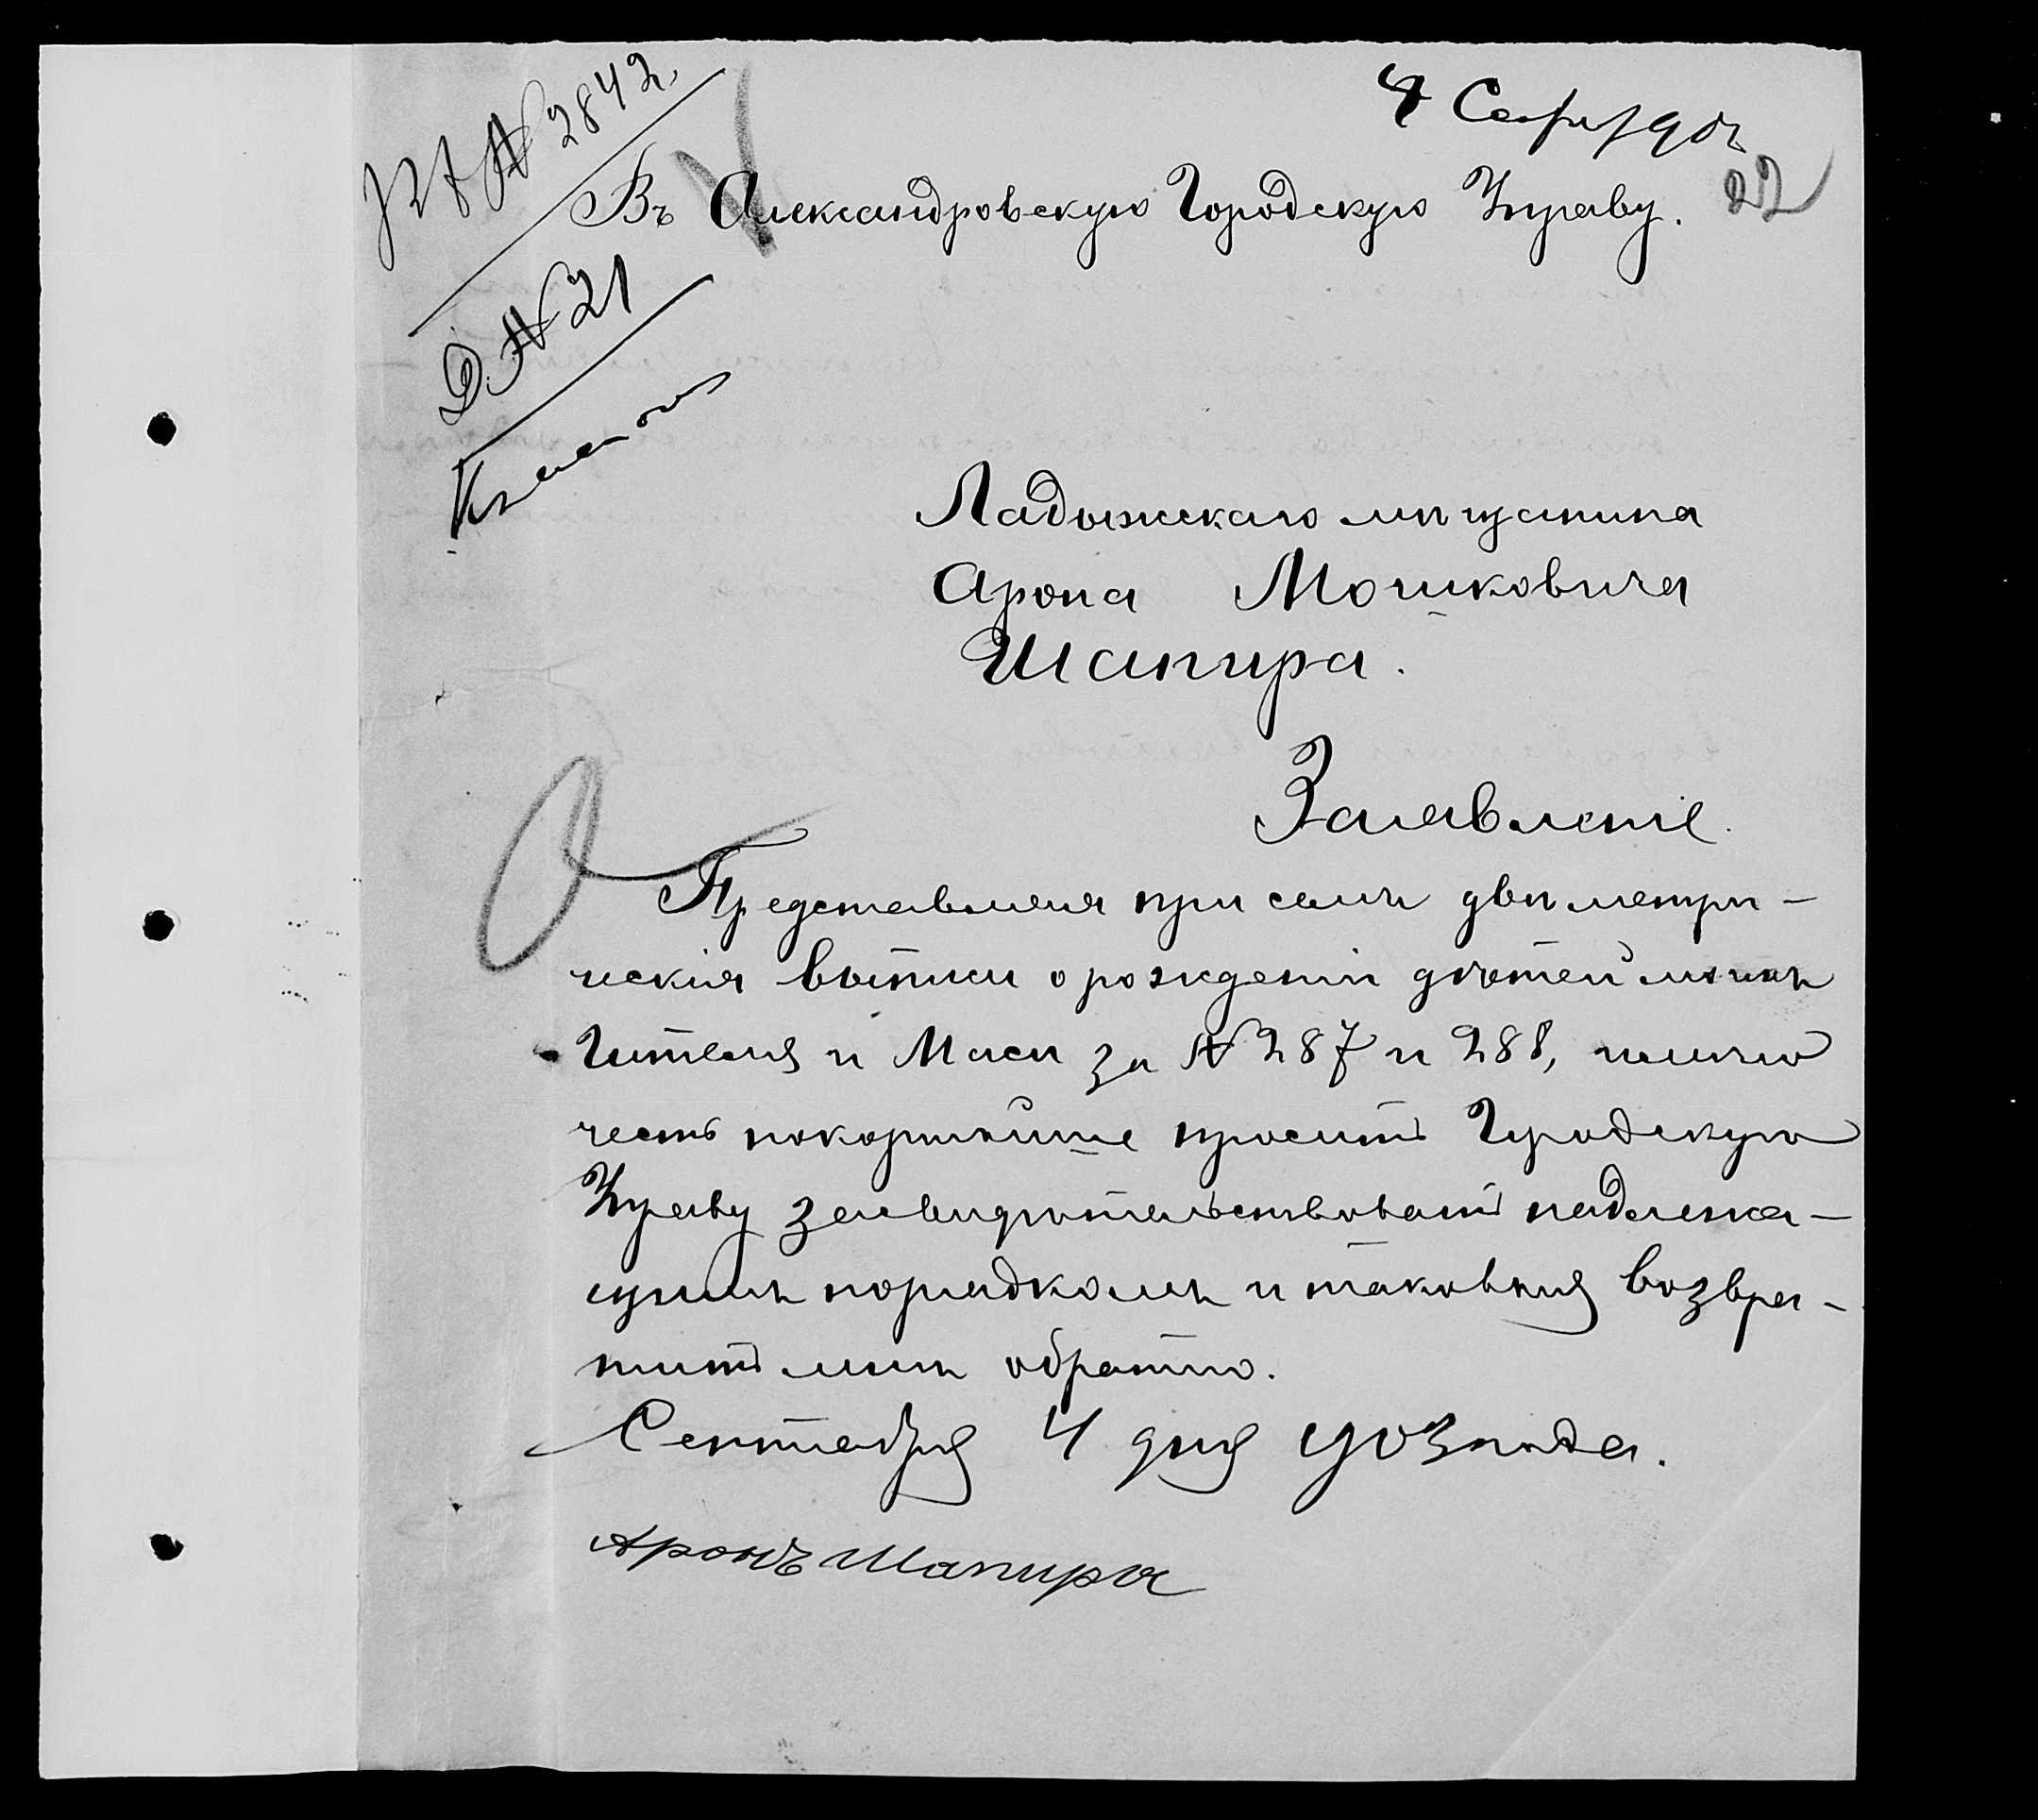 № 2842.
Д. № 21
4 Сент 190
22
Въ Александровскую Городскую Управу.
Ладыжскаго мѣщанина
Арона Мошковича
Шапира.
Заявленіе.
Представляя при семъ двѣ метри-
ческія выписи о рожденіи дѣтей моихъ
Гителя и Маси за № 287 и 288, имѣю
честь покорнѣйше просить Городскую
Управу засвидѣтельствовать надлежа-
щимъ порядкомъ и таковыя возвра-
тить мнѣ обратно.
Сентября 4 дня 1903 года.
Аронъ Шапира